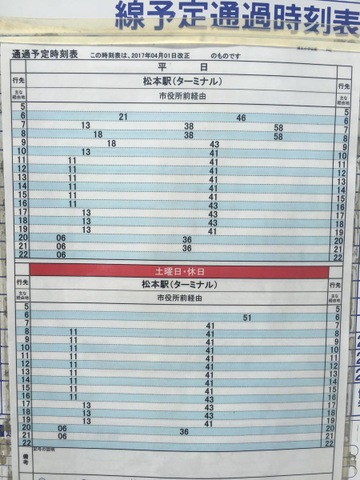 線予定通過時刻表
通過予定時刻表 この時刻表は、2017年04月01日改正 のものです
平 日
行先 松本駅(ターミナル) 行先
主な経由地 市役所前経由 主な経由地
5 5
6 21 46 6
7 13 38 58 7
8 18 38 58 8
9 18 43 9
10 13 41 10
11 11 41 11
12 11 43 12
13 11 43 13
14 11 43 14
15 11 43 15
16 11 43 16
17 13 43 17
18 13 43 18
19 13 41 19
20 06 36 20
21 06 36 21
22 06 22
土曜日・休日
行先 松本駅(ターミナル) 行先
主な経由地 市役所前経由 主な経由地
5 5
6 51 6
7 41 7
8 11 41 8
9 11 41 9
10 11 41 10
11 11 41 11
12 11 41 12
13 11 41 13
14 11 41 14
15 11 41 15
16 11 43 16
17 13 43 17
18 13 41 18
19 13 41 19
20 06 36 20
21 06 21
22 22
備考 記号の説明